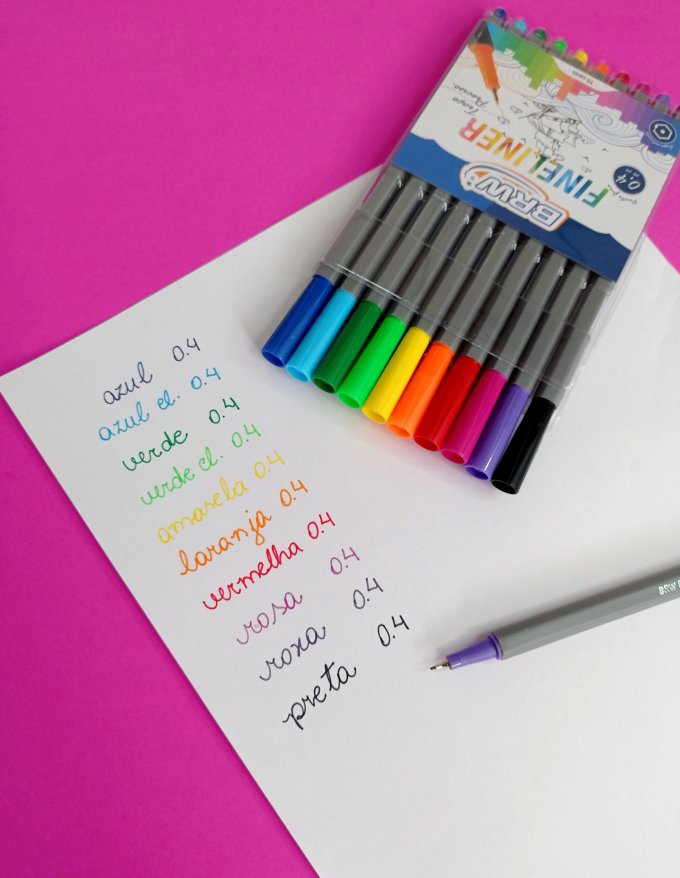 azul 0.4
azul cl. 0.4
verde 0.4
verde cl. 0.4
amarela 0.4
laranja 0.4
vermelha 0.4
rosa 0.4
roxa 0.4
preta 0.4
BRW
FINELINER
0.4
Traço
Preciso.
10 cores
BRW